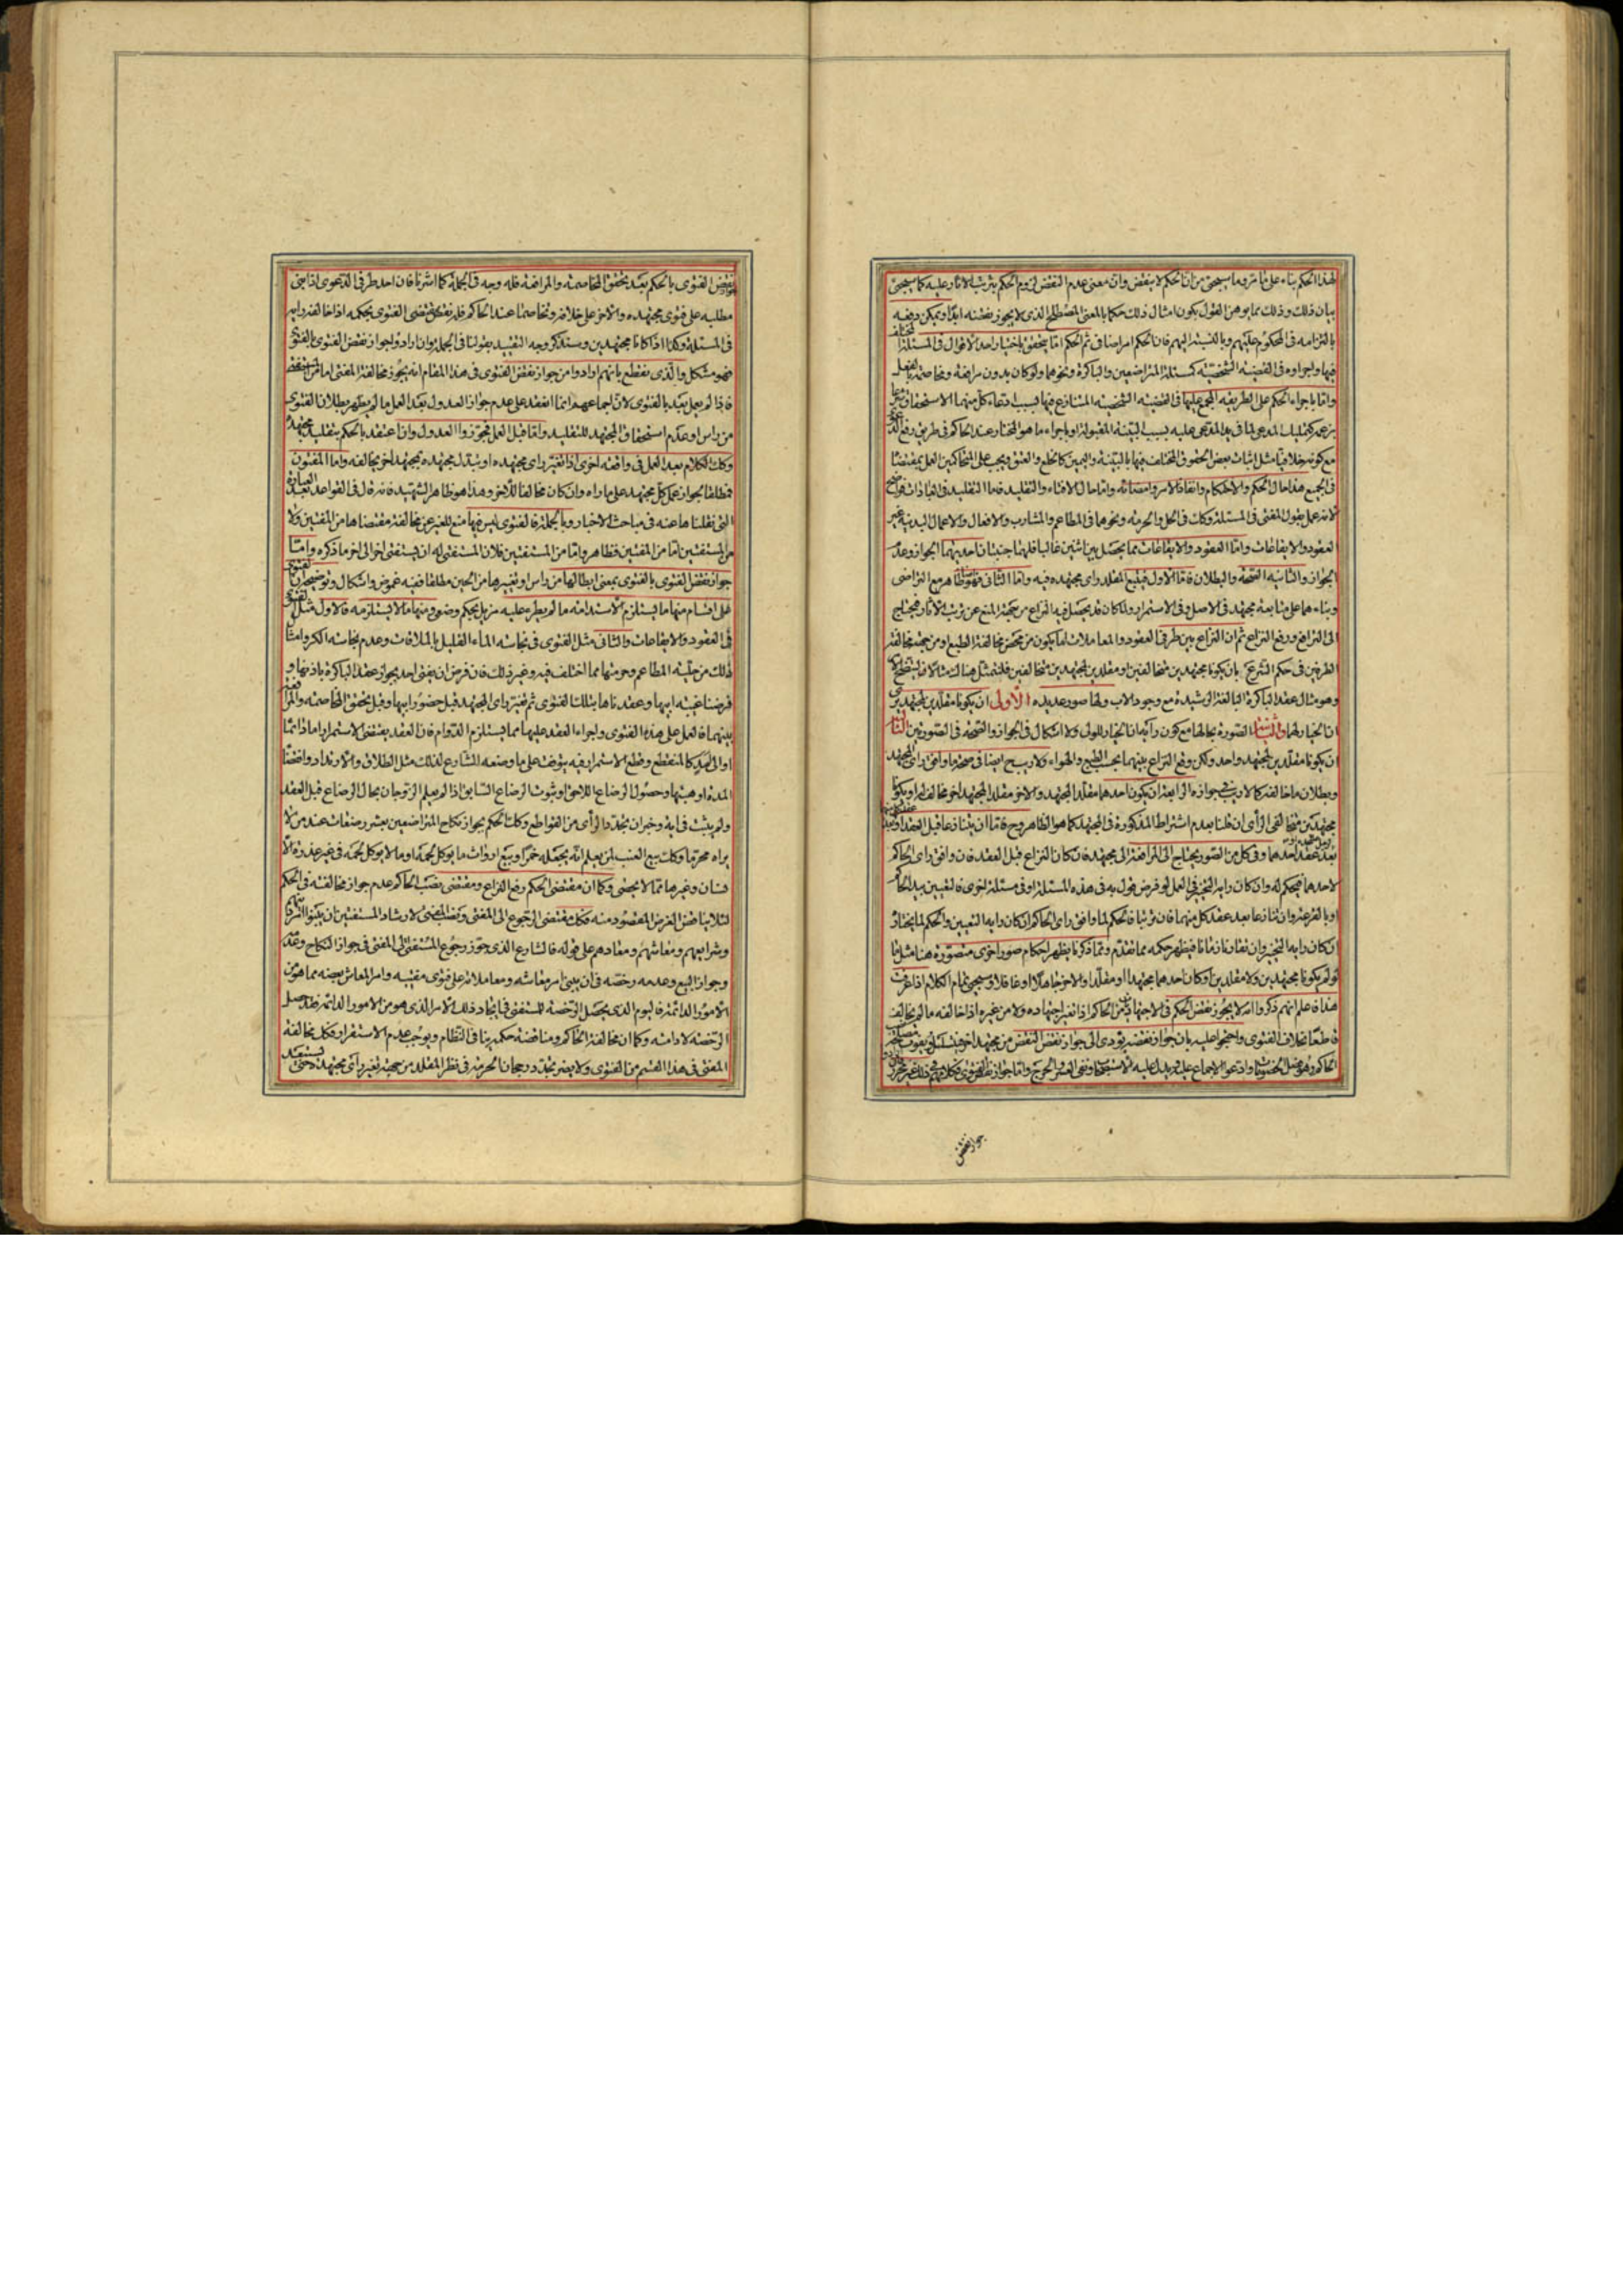 لهذا الحكم بناء على ما مر وما سيجئ من ان الحكم لا ينقض وان معنى عدم النقض لزوم الحكم بترتيب الاثار عليه كما سيجئ
بيان ذلك وذلك مما يوهن القول بكون امثال ذلك حكما بالمعنى المصطلح الذى لا يجوز نقضه ابدا ويمكن دفعه
بالتزامه فى المحكوم عليهم وبالنسبة اليهم فان الحكم امر اضافى ثم الحكم اما يتحقق باختيار احد الاقوال فى المسئلة المختلف
فيها واجراؤه فى القضية الشخصية كمسئلة المتراضعين والباكرة ونحوهما ولو كان بدون مرافعة ومخاصمة بالفعل
واما باجراء الحكم على الطريقة المجمع عليها فى القضية الشخصية المتنازع فيها بسبب ادعاء كل منهما الاستحقاق على
بزعمه كتمليك المدعى لما فى يد المدعى عليه بسبب البينة المقبولة او باجراء ما هو المختار عند الحاكم فى طريق رفع
مع كونه خلافيا مثل اثبات بعض الحقوق المختلف فيها بالبينة واليمين كالخلع والعتق ويجب على المتحاكمين العمل بمقتضاها
فى الجميع هذا حال الحكم والاحكام وانفاذ الامر وامضائه واما حال الافتاء والتقليد فاما التقليد فى العبادات فواضح
لانه عمل بقول المفتى فى المسئلة وكك فى الحل والحرمة ونحوهما فى المطاعم والمشارب والافعال والاعمال البدنية غير
العقود والايقاعات واما العقود والايقاعات مما يحصل بين اثنين غالبا فلهما جنبتان احديهما الجواز وعدم
الجواز والثانية الصحة والبطلان فاما الاول فيتبع المقلد راى مجتهده فيه واما الثانى فهو ظاهر مع التراضى
وبناءهما على متابعة مجتهد فى الاصل وفى الاستمرار ولكن قد يحصل فيه النزاع من جهة المنع عن ترتيب الاثار فيحتاج
الى الترافع ورفع النزاع ثم ان النزاع بين طرفى العقود والمعاملات اما يكون من محض مخالفة الطبع او من جهة مخالفة
الطرفين فى حكم الشرع بان يكونا مجتهدين متخالفين او مقلدين لمجتهدين متخالفين فلنمثل هناك مثالا
وهو مثال عقد الباكرة البالغة الرشيدة مع وجود الاب ولها صور عديدة الاولى ان يكونا مقلدين لمجتهدين
ان الخيار لها والثانية الصورة بحالها مع كون رأيهما ان الخيار للولى ولا اشكال فى الجواز والصحة فى الصورتين الثالثة
ان يكونا مقلدين لمجتهد واحد ولكن وقع النزاع بينهما بحسب الطبع والهواء ولا ريب ح ايضا فى صحة ما وافق راى المجتهد
وبطلان ما خالفه كما لا ريب فى جوازه الرابعة ان يكون احدهما مقلدا لمجتهد والاخر مقلدا لمجتهد اخر مخالف له او يكونا
مجتهدين متخالفى الرأى ان قلنا بعدم اشتراط المذكورة فى المجتهد كما هو الظاهر وح فاما ان يتنازعا قبل العقد او
بعد عقد احدهما وفى كل من الصور يحتاج الى المرافعة الى مجتهد فان كان النزاع قبل العقد فان وافق راى الحاكم
لاحدهما فيحكم له وان كان رايه التخيير فى العمل لو فرض قول به فى هذه المسئلة او فى مسئلة اخرى فالتعيين بيد الحاكم
او بالقرعة وان تنازعا بعد عقد كل منهما فان ترتبا فالحكم لما وافق راى الحاكم ان كان رايه التعيين والحكم لما يختاره
ان كان رايه التخيير وان تقارنا زمانا فيظهر حكمه مما تقدم ومما ذكرنا يظهر احكام صور اخرى متصورة هنا مثل ما
لو لم يكونا مجتهدين ولا مقلدين او كان احدهما مجتهدا او مقلدا والاخر جاهلا او غافلا وسيجئ تمام الكلام اذا عرفت
هذا فاعلم انهم ذكروا انه لا يجوز نقض الحكم فى الاجتهاديات من الحاكم اذا تغير اجتهاده ولا من غيره اذا خالفه ما لم يخالف
قاطعا بخلاف الفتوى واحتجوا عليه بان جواز نقضه يؤدى الى جواز نقض النقض من مجتهد اخر فيتسلسل فيفوت مصلحة
الحاكم وهو فصل الخصومات وادعوا الاجماع عليه ويدل عليه الاستصحاب ونفى العسر والحرج واما جواز نقض الفتوى فكلامهم فيه غير محرر
جواز نقض
نقض الفتوى بالحكم بعد تحقق المخاصمة والمرافعة فله وجه فى الجملة كما اشرنا فان احد طرفى الدعوى اذا بنى
مطلبه على فتوى مجتهده والاخر على خلافه وتخاصما عند الحاكم فله نقض مقتضى الفتوى بحكمه اذا خالفه رايه
فى المسئلة وكذا اذا كانا مجتهدين وسنذكر وجه التقييد بقولنا فى الجملة وان ارادوا جواز نقض الفتوى بالفتوى
فهو مشكل والذى نقطع بانهم ارادوا من جواز نقض الفتوى فى هذا المقام انه يجوز مخالفة المفتى اما من المستفتى
فاذا لم يعمل بعد بالفتوى لان اجماعهم انما انعقد على عدم جواز العدول بعد العمل ما لم يظهر بطلان الفتوى
من راس او عدم استحقاق المجتهد للتقليد واما قبل العمل فجوزوا العدول وان اعتقد بالحكم بتقليد مجتهد
وكك الكلام بعد العمل فى واقعة اخرى اذا تغير راى مجتهده او يتبدل مجتهده بمجتهد اخر يخالفه واما المفتون
فمطلقا لجواز عمل كل مجتهد على ما راه وان كان مخالفا للاخر وهذا هو ظاهر الشهيد فانه قال فى القواعد بعد العبارة
التى نقلناها عنه فى مباحث الاخبار وبالجملة فالفتوى ليس فيها منع للغير عن مخالفة مقتضاها من المفتين ولا
من المستفتين اما من المفتين فظاهر واما من المستفتين فلان المستفتى له ان يستفتى اخر الى اخر ما ذكره واما
جواز نقض الفتوى بالفتوى بمعنى ابطالها من راس او تغييرها من الحين مطلقا ففيه غموض واشكال وتوضيحه ان الفتوى
على اقسام منها ما يستلزم الاستدامة ما لم يطرء عليه مزيل بحكم وضعى ومنها ما لا يستلزمه فالاول مثل الفتوى
فى العقود والايقاعات والثانى مثل الفتوى فى نجاسة الماء القليل بالملاقات وعدم نجاسة الكر وامثال
ذلك من حلية المطاعم وحرمتها مما اختلف فيه وغير ذلك فان فرض ان يفتى احد بجواز عقد الباكرة باذنها و
فرضنا غيبة ابيها وعقدناها بتلك الفتوى ثم تغير راى المجتهد قبل حضور ابيها وقبل تحقق المخاصمة والمرافعة
بينهما فالعمل على هذه الفتوى واجراء العقد عليها مما يستلزم الدوام فان العقد يقتضى الاستمرار اما دائما
او الى اجل كالمنقطع وقطع الاستمرار فيه يتوقف على ما وضعه الشارع لذلك مثل الطلاق والارتداد وانقضاء
المدة او هبتها وحصول الرضاع اللاحق وثبوت الرضاع السابق اذا لم يعلم الزوجان بحال الرضاع قبل العقد
ولم يثبت فى اية وخبر ان تجدد الرأى من القواطع وكك الحكم بجواز نكاح المتراضعين بعشر رضعات عند من لا
يراه محرما وكك بيع العنب لمن يعلم انه يجعله خمرا وبيع ارواث ما يوكل لحمه او ما لا يوكل لحمه فى غير عذرة الا
نسان وغيرها مما لا يحصى وكما ان مقتضى الحكم رفع النزاع ومقتضى نصب الحاكم عدم جواز مخالفته فى الحكم
لئلا يناقض الغرض المقصود منه فكك مقتضى الرجوع الى المفتى ونصب المفتى لارشاد المستفتين ان يبنوا امر دينهم
وشرايعهم ومعاشهم ومعادهم على قوله فالشارع الذى جوز رجوع المستفتى الى المفتى فى جواز النكاح وعدمه
وجواز البيع وعدمه رخصه فى ان يبنى امر معاشه ومعاملاته على فتوى مفتيه وامر المعاش بعضه مما هو من
الامور الدائمة فاليوم الذى يحصل الرخصة للمستفتى فى ايجاد ذلك الامر الذى هو من الامور الدائمة فقد حصل
الرخصة لادامته وكما ان مخالفة الحاكم ومناقضة حكمه ينافى النظام ويوجب عدم الاستقرار فكك مخالفة
المفتى فى هذا القسم من الفتوى ولا يضر تجدد رجحان الحرمة فى نظر المقلد من جهة تغير رأى مجتهده حتى يستبعد